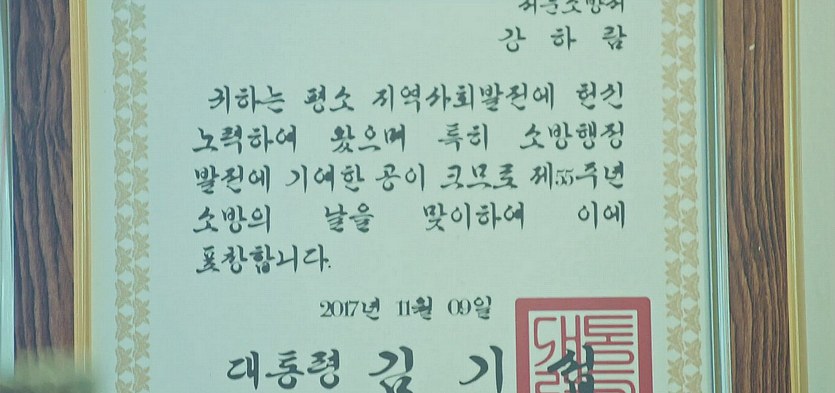 서운소방서
강 하 람
귀하는 평소 지역사회발전에 헌신
노력하여 왔으며 특히 소방행정
발전에 기여한 공이 크므로 제55주년
소방의 날을 맞이하여 이에
표창합니다.
2017년 11월 09일
대통령 김 기